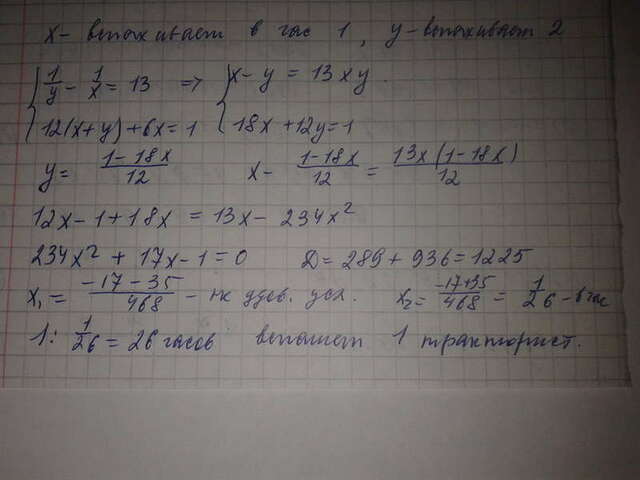 x - вспахивает в час 1, y - вспахивает 2
{ 1/y - 1/x = 13 => { x - y = 13xy.
12(x+y)+6x=1 18x+12y=1
y = (1-18x)/12 x - (1-18x)/12 = 13x(1-18x)/12
12x-1+18x = 13x-234x²
234x² + 17x-1=0 D=289+936=1225
x₁ = (-17-35)/468 - не удов. усл. x₂ = (-17+35)/468 = 1/26 - в час
1: 1/26 = 26 часов вспашет 1 тракторист.